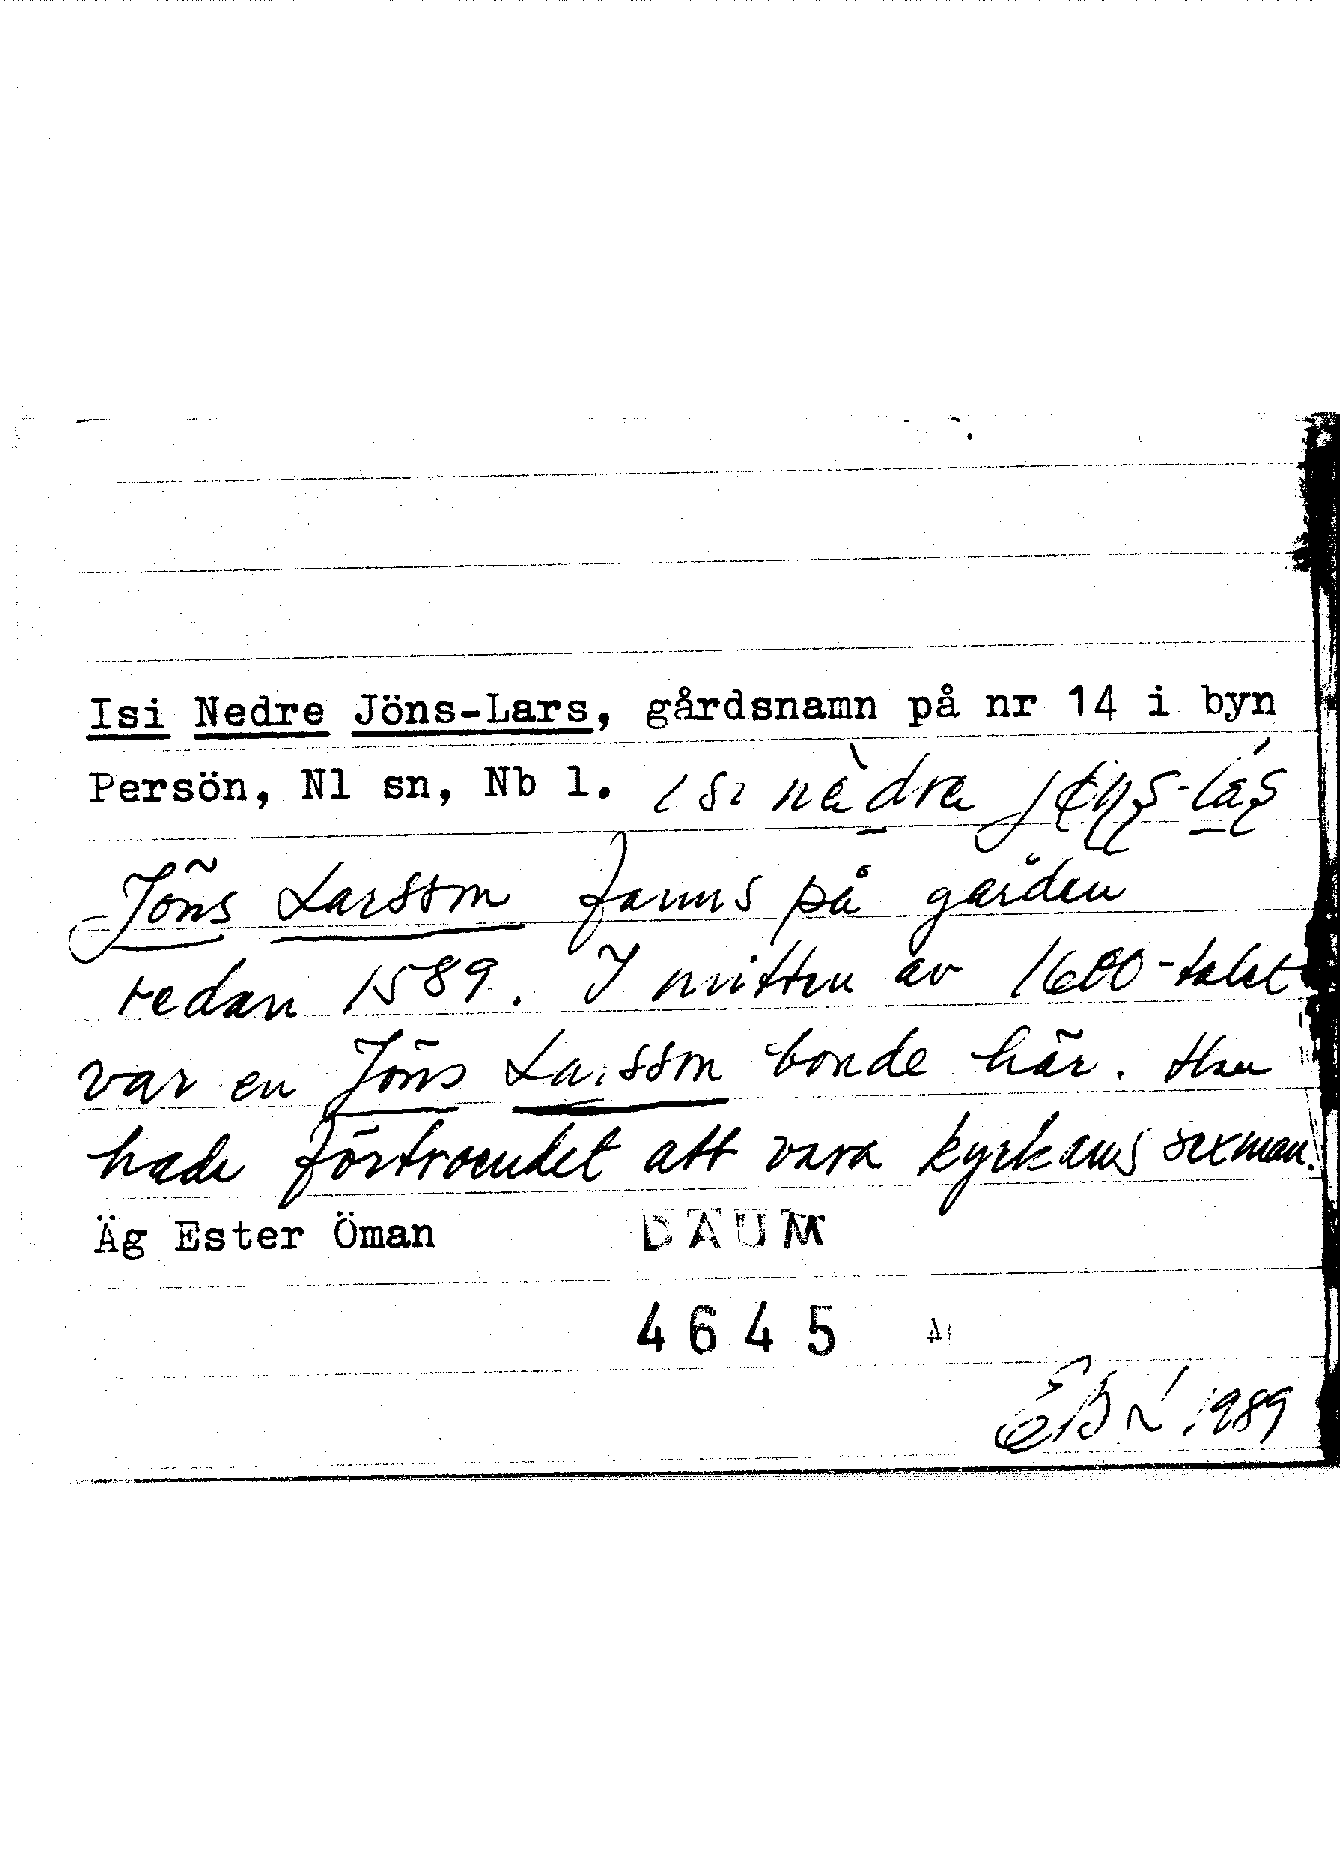 Isi Nedre Jöns-Lars, gårdsnamn på nr 14 i byn
Persön, Nl sn, Nb l. isi nèdra
Jöns Larsson fanns på gården
redan 1589. I mitten av 1600-talet
var en Jöns Larsson bonde här. Han
hade förtroendet att vara kyrkans sexman.
Äg Ester Öman DAUM
4645
EBL 1989